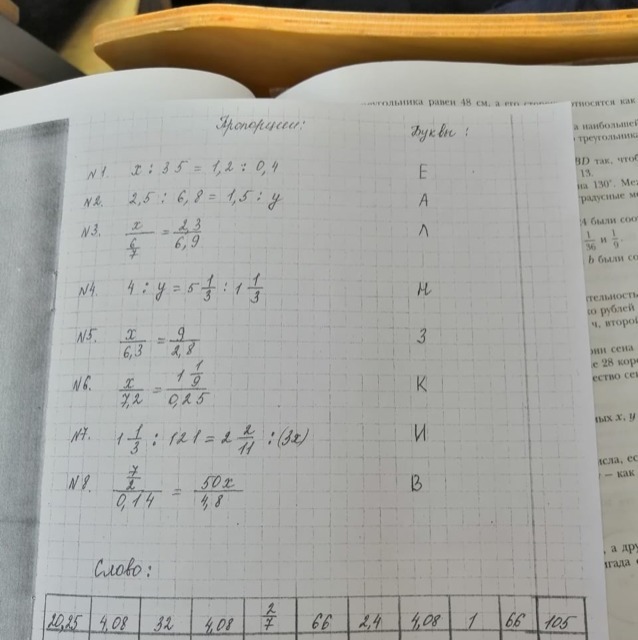 Пропорции: Буквы:
№1. x : 35 = 1,2 : 0,4 Е
№2. 2,5 : 6,8 = 1,5 : y А
№3. x / 6/7 = 2,3 / 6,9 Л
№4. 4 : y = 5 1/3 : 1 1/3 Н
№5. x / 6,3 = 9 / 2,8 З
№6. x / 7,2 = 1 1/9 / 0,25 К
№7. 1 1/3 : 121 = 2 2/11 : (3x) И
№8. 7/2 / 0,14 = 50x / 4,8 В
Слово:
20,25 4,08 32 4,08 2/7 66 2,4 4,08 1 66 105
угольника равен 48 см, а его относятся как
наибольшей
треугольника
BD так, чтоб
13.
на 130°. Ме
радусные ме
были соо
1/36 и 1/9
b были со
тельность
ко рублей
ч, второй
рни сена
е 28 коро
ество се
ных x, y
исла, ес
— как
а дру
игада